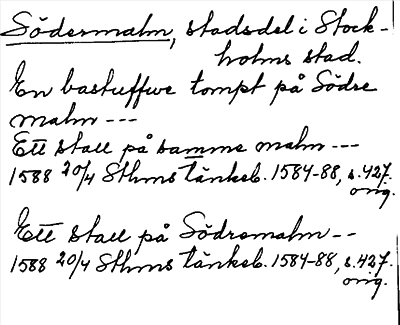 Södermalm, stadsdel i Stock-
holms stad.
En bastuffwe tompt på Södre
malm ---
Ett stall på samme malm ---
1588 20/4 Sthms tänkeb. 1584-88, s.427.
orig.
Ett stall på Södremalm --
1588 20/4 Sthms tänkeb. 1584-88, s.427.
orig.